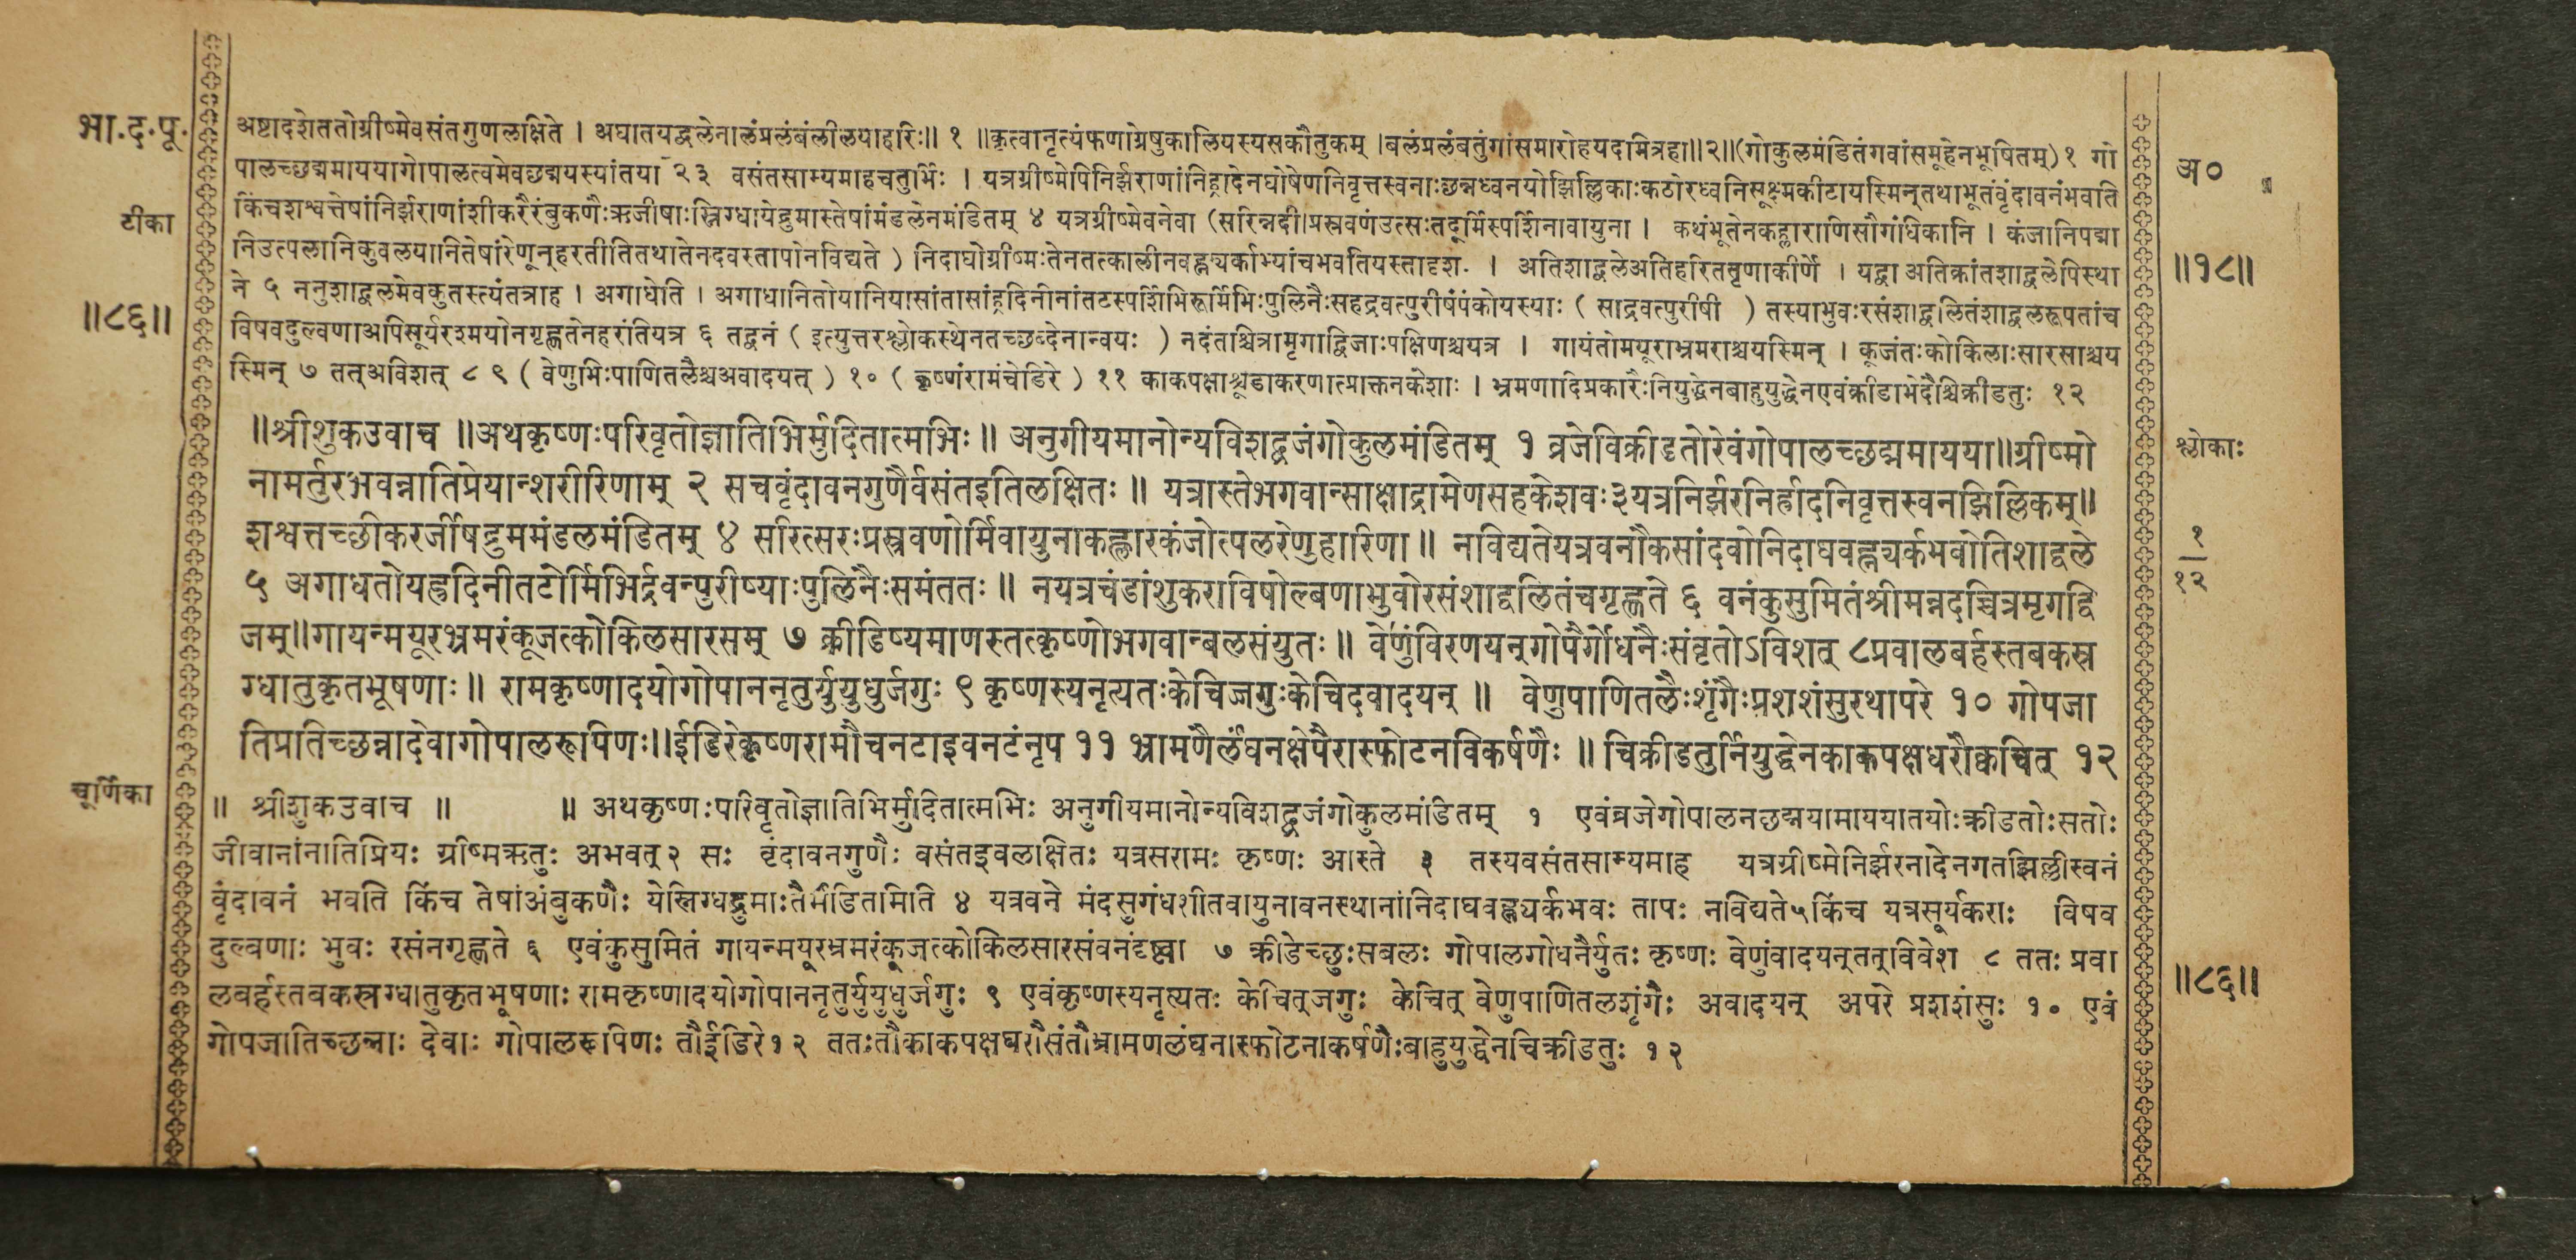 भा.द.पू.
अष्टादशेततोग्रीष्मेवसंतगुणलक्षिते । अघातयद्बलेनालंप्रलंबंलीलयाहरिः॥ १ ॥कृत्वानृत्यंफणाग्रेषुकालियस्यसकौतुकम् ।बलंप्रलंबतुंगांसमारोहयदमित्रहा॥२॥(गोकुलमंडितंगवांसमूहेनभूषितम्)१ गो
पालच्छद्ममाययागोपालत्वमेवछद्मयस्यांतया २३ वसंतसाम्यमाहचतुर्भिः । यत्रग्रीष्मेपिनिर्झराणांनिह्रादेनघोषेणनिवृत्तस्वनाःछन्नध्वनयोझिल्लिकाःकठोरध्वनिसूक्ष्मकीटायस्मिन्तथाभूतंवृंदावनंभवति
अ०
टीका
किंचशश्वत्तेषांनिर्झराणांशीकरैरंबुकणैःऋजीषाःस्निग्धायेद्रुमास्तेषांमंडलेनमंडितम् ४ यत्रग्रीष्मेवनेवा (सरिन्नदी।प्रस्रवणंउत्सःतदूर्मिस्पर्शिनावायुना । कथंभूतेनकह्लाराणिसौगंधिकानि । कंजानिपद्मा
निउत्पलानिकुवलयानितेषांरेणून्हरतीतितथातेनदवस्तापोनविद्यते ) निदाघोग्रीष्मःतेनतत्कालीनवह्न्यर्काभ्यांचभवतियस्तादृश. । अतिशाद्वलेअतिहरिततृणाकीर्णे । यद्वा अतिक्रांतशाद्वलेपिस्था
॥१८॥
ने ५ ननुशाद्वलमेवकुतस्त्यंतत्राह । अगाधेति । अगाधानितोयानियासांतासांह्रदिनीनांतटस्पर्शिभिरूर्मिभिःपुलिनैःसहद्रवत्पुरीषंपंकोयस्याः ( साद्रवत्पुरीषी ) तस्याभुवःरसंशाद्वलितंशाद्वलरूपतांच
॥८६॥
विषवदुल्वणाअपिसूर्यरश्मयोनगृह्णतेनहरांतियत्र ६ तद्वनं ( इत्युत्तरश्लोकस्थेनतच्छब्देनान्वयः ) नदंतश्चित्रामृगाद्विजाःपक्षिणश्चयत्र । गायंतोमयूराभ्रमराश्चयस्मिन् । कूजंतःकोकिलाःसारसाश्चय
स्मिन् ७ तत्अविशत् ८ ९ ( वेणुभिःपाणितलैश्चअवादयत् ) १० ( कृष्णंरामंचेडिरे ) ११ काकपक्षाश्चूडाकरणात्प्राक्तनकेशाः । भ्रमणादिप्रकारैःनियुद्धेनबाहुयुद्धेनएवंक्रीडाभेदैश्चिक्रीडतुः १२
॥श्रीशुकउवाच ॥अथकृष्णःपरिवृतोज्ञातिभिर्मुदितात्मभिः॥ अनुगीयमानोन्यविशद्व्रजंगोकुलमंडितम् १ व्रजेविक्रीडतोरेवंगोपालच्छद्ममायया॥ग्रीष्मो
श्लोकाः
नामर्तुरभवन्नातिप्रेयान्शरीरिणाम् २ सचवृंदावनगुणैर्वसंतइतिलक्षितः ॥ यत्रास्तेभगवान्साक्षाद्रामेणसहकेशवः३यत्रनिर्झरनिर्ह्रादनिवृत्तस्वनझिल्लिकम्॥
शश्वत्तच्छीकरर्जीषद्रुममंडलमंडितम् ४ सरित्सरःप्रस्रवणोर्मिवायुनाकह्लारकंजोत्पलरेणुहारिणा ॥ नविद्यतेयत्रवनौकसांदवोनिदाघवह्न्यर्कभवोतिशाद्वले
१
१२
५ अगाधतोयह्रदिनीतटोर्मिभिर्द्रवन्पुरीष्याःपुलिनैःसमंततः ॥ नयत्रचंडांशुकराविषोल्बणाभुवोरसंशाद्वलितंचगृह्णते ६ वनंकुसुमितंश्रीमन्नदच्चित्रमृगद्वि
जम्॥गायन्मयूरभ्रमरंकूजत्कोकिलसारसम् ७ क्रीडिष्यमाणस्तत्कृष्णोभगवान्बलसंयुतः ॥ वेणुंविरणयन्गोपैर्गोधनैःसंवृतोऽविशत् ८प्रवालबर्हस्तबकस्र
ग्धातुकृतभूषणाः ॥ रामकृष्णादयोगोपाननृतुर्युयुधुर्जगुः ९ कृष्णस्यनृत्यतःकेचिज्जगुःकेचिदवादयन् ॥ वेणुपाणितलैःशृंगैःप्रशशंसुरथापरे १० गोपजा
तिप्रतिच्छन्नादेवागोपालरूपिणः॥ईडिरेकृष्णरामौचनटाइवनटंनृप ११ भ्रामणैर्लंघनक्षेपैरास्फोटनविकर्षणैः ॥ चिक्रीडतुर्नियुद्धेनकाकपक्षधरौक्वचित् १२
चूर्णिका
॥ श्रीशुकउवाच ॥ ॥ अथकृष्णःपरिवृतोज्ञातिभिर्मुदितात्मभिः अनुगीयमानोन्यविशद्व्रजंगोकुलमंडितम् १ एवंव्रजेगोपालनछद्मयामाययातयोःक्रीडतोःसतोः
जीवानांनातिप्रियः ग्रीष्मऋतुः अभवत्२ सः वृंदावनगुणैः वसंतइवलक्षितः यत्रसरामः कृष्णः आस्ते ३ तस्यवसंतसाम्यमाह यत्रग्रीष्मेनिर्झरनादेनगतझिल्लीस्वनं
वृंदावनं भवति किंच तेषांअंबुकणैः येस्निग्धद्रुमाःतैर्मंडितमिति ४ यत्रवने मंदसुगंधशीतवायुनावनस्थानांनिदाघवह्न्यर्कभवः तापः नविद्यते५किंच यत्रसूर्यकराः विषव
दुल्वणाः भुवः रसंनगृह्णते ६ एवंकुसुमितं गायन्मयूरभ्रमरंकूजत्कोकिलसारसंवनंदृष्ट्वा ७ क्रीडेच्छुःसबलः गोपालगोधनैर्युतः कृष्णः वेणुंवादयन्तत्विवेश ८ ततः प्रवा
लबर्हस्तबकस्रग्धातुकृतभूषणाः रामकृष्णादयोगोपाननृतुर्युयुधुर्जगुः ९ एवंकृष्णस्यनृत्यतः केचित्जगुः केचित् वेणुपाणितलशृंगैः अवादयन् अपरे प्रशशंसुः १० एवं
॥८६॥
गोपजातिच्छन्नाः देवाः गोपालरूपिणः तौईडिरे१२ ततःतौकाकपक्षधरौसंतौभ्रामणलंघनास्फोटनाकर्षणैःबाहुयुद्धेनचिक्रीडतुः १२